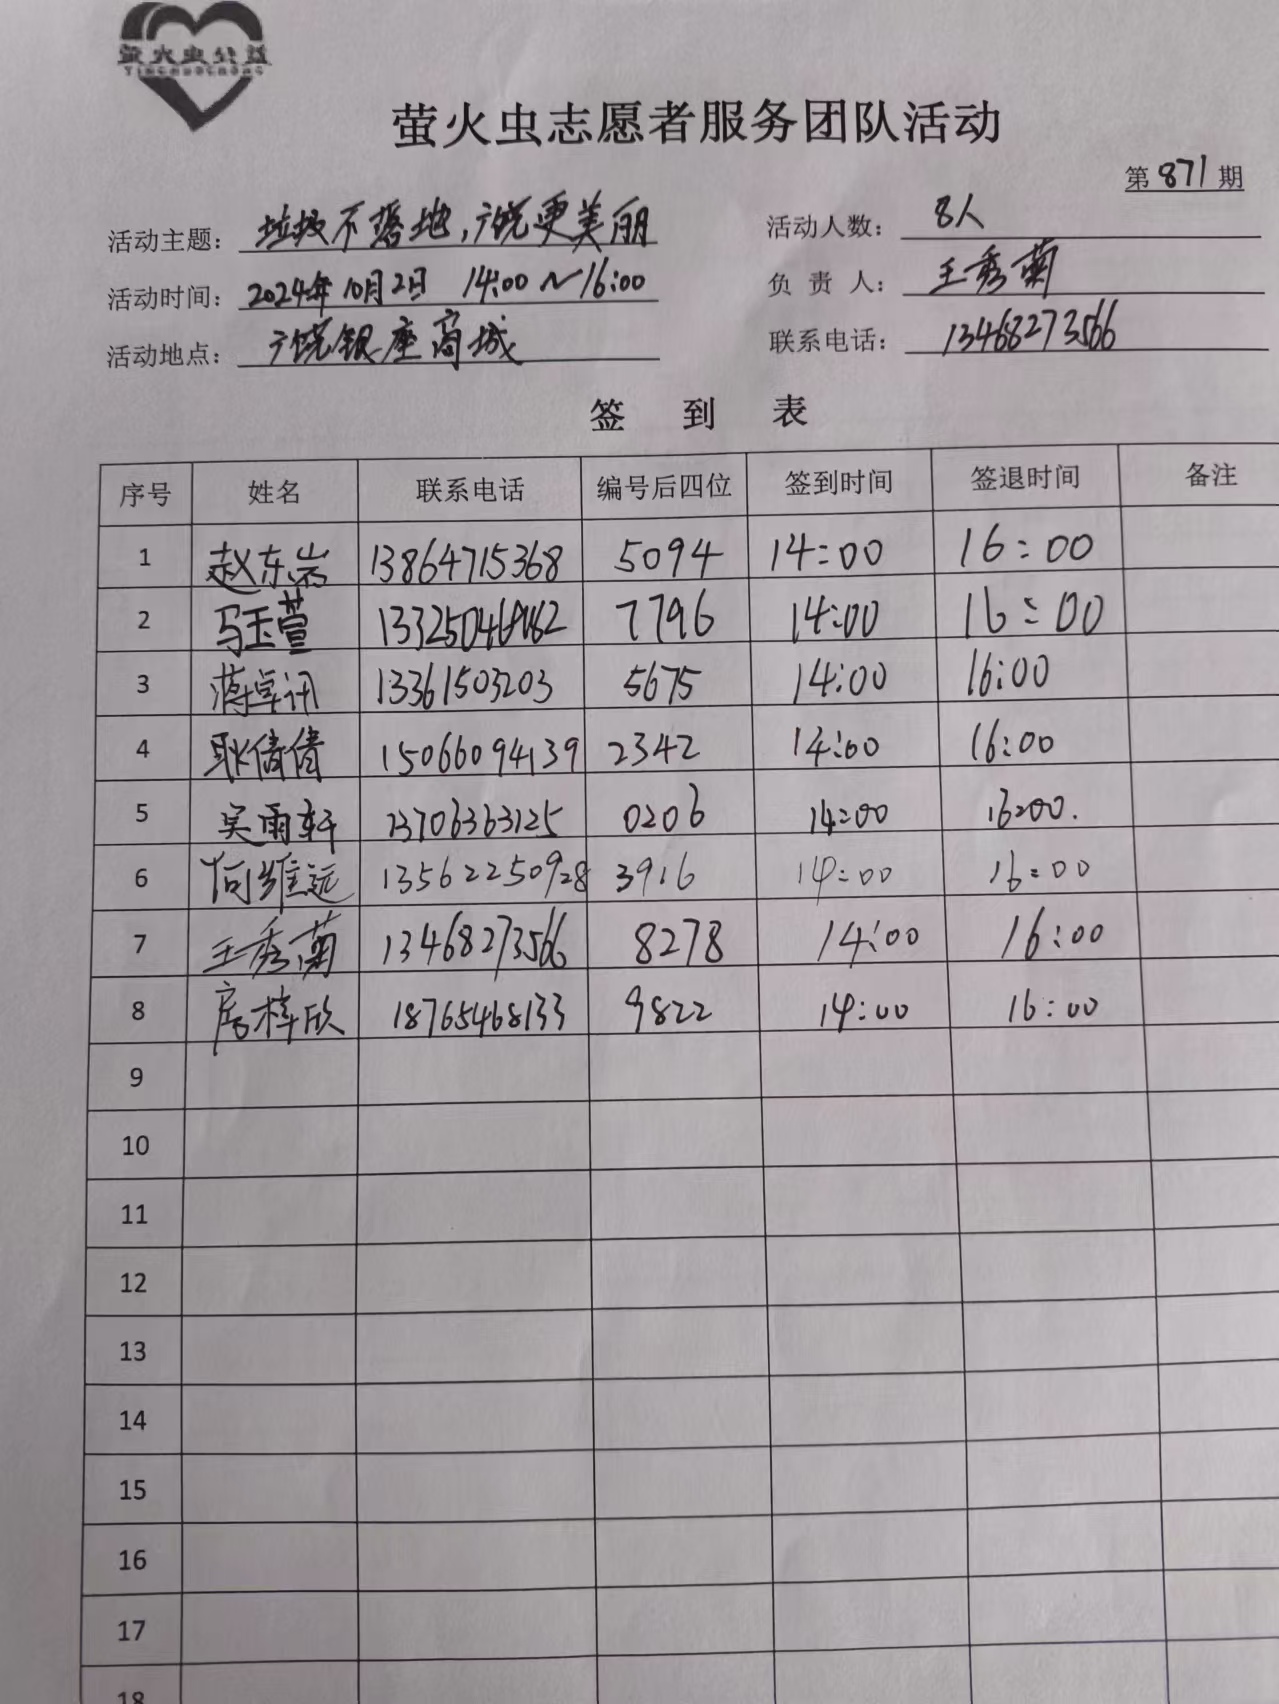 萤火虫公益
YINGHUOCHONG
萤火虫志愿者服务团队活动
第 871 期
活动主题: 垃圾不落地,广饶更美丽 活动人数: 8人
活动时间: 2024年10月2日 14:00~16:00 负责人: 王秀菊
活动地点: 广饶银座商城 联系电话: 13468273566
签到表
序号 姓名 联系电话 编号后四位 签到时间 签退时间 备注
1 赵东岩 13864715368 5094 14:00 16:00
2 马玉萱 7796 14:00 16:00
3 蒋卓讯 13361503203 5675 14:00 16:00
4 耿倩倩 15066094139 2342 14:00 16:00
5 吴雨轩 13706363125 0206 14:00 16:00.
6 何维远 13562250928 3916 14:00 16:00
7 王秀菊 13468273566 8278 14:00 16:00
8 房梓欣 18765468133 9822 14:00 16:00
9
10
11
12
13
14
15
16
17
18